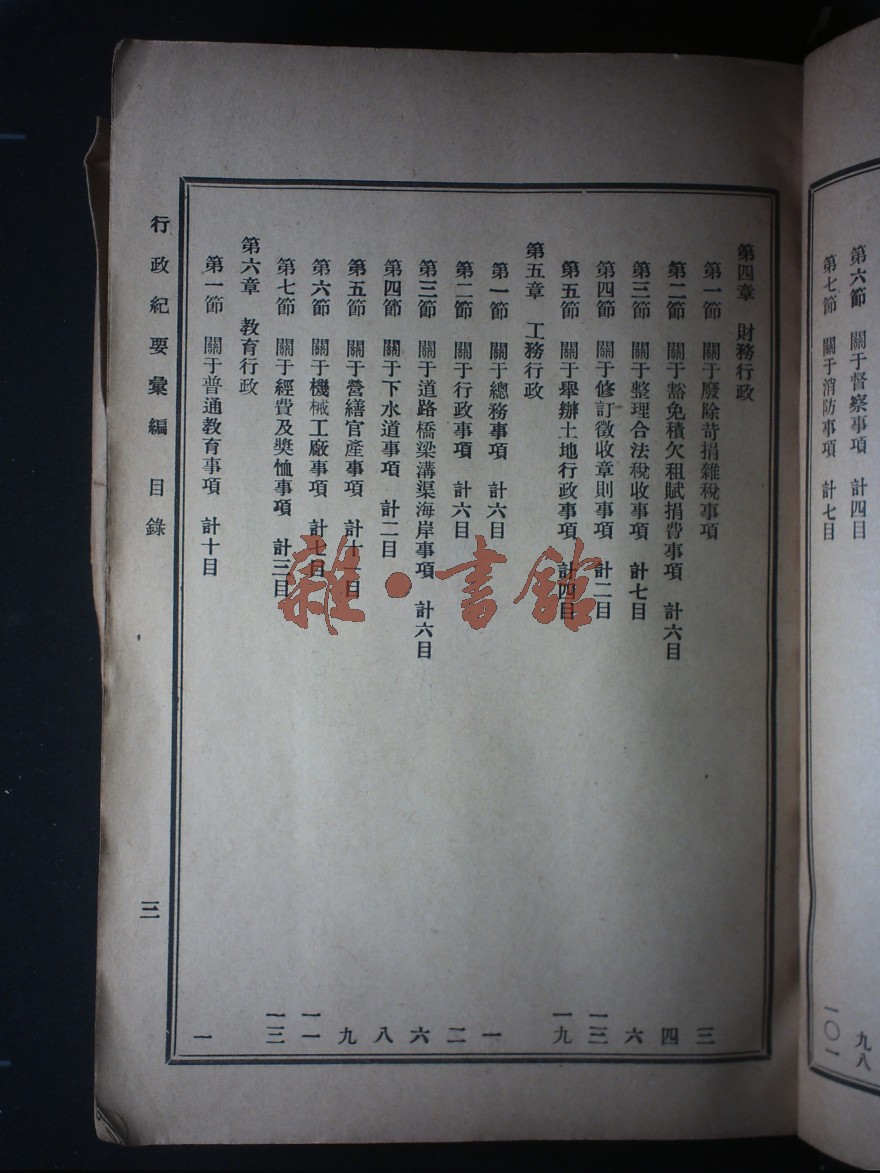 第六節 關于督察事項 計四目 九八
第七節 關于消防事項 計七目 一〇一
第四章 財務行政
第一節 關于廢除苛捐雜稅事項 三
第二節 關于豁免積欠租賦捐費事項 計六目 四
第三節 關于整理合法稅收事項 計七目 六
第四節 關于修訂徵收章則事項 計二目 一三
第五節 關于舉辦土地行政事項 計四目 一九
第五章 工務行政
第一節 關于總務事項 計六目 一
第二節 關于行政事項 計六目 二
第三節 關于道路橋梁溝渠海岸事項 計六目 六
第四節 關于下水道事項 計二目 八
第五節 關于營繕官產事項 計十一目 九
第六節 關于機械工廠事項 計七目 一一
第七節 關于經費及獎恤事項 計三目 一三
第六章 教育行政
第一節 關于普通教育事項 計十目 一
行政紀要彙編 目錄 三
雜·書館